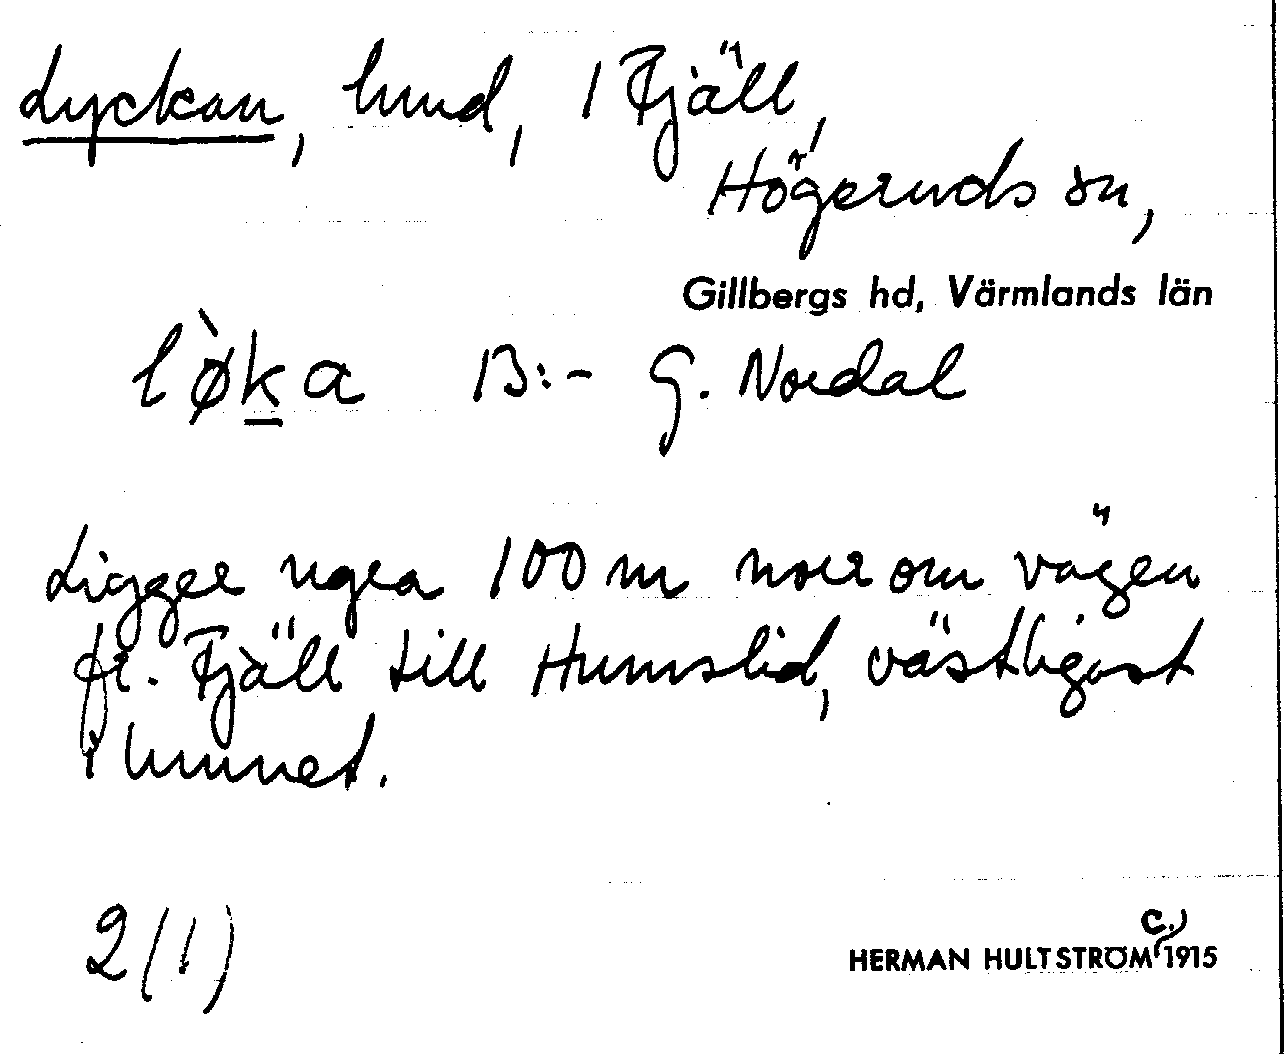 Lyckan, lund, 1 Fjäll,
Högeruds sn,
Gillbergs hd, Värmlands län
lø̀ka B:- G. Nordal
Ligger ngra 100 m norr om vägen
fr. Fjäll till Humslid, västligast
i hemmanet.
2(1)
HERMAN HULTSTRÖM c.) 1915